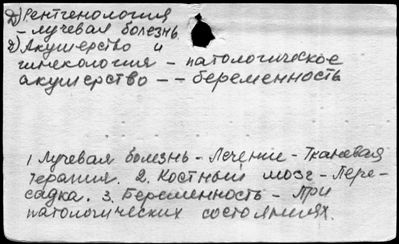 д) Рентгенология
– лучевая болезнь
е) Акушерство и
гинекология – патологическое
акушерство – – беременность
1 Лучевая болезнь – Лечение – Тканевая
терапия. 2. Костный мозг – Пере-
садка. 3. Беременность – При
патологических состояниях.